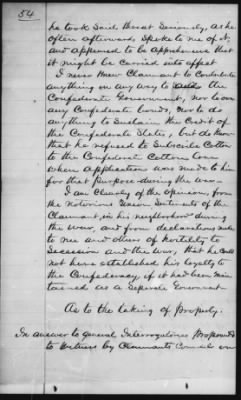 54
he took said threat seriously, as he
often afterwards spoke to me of it,
and appeared to be apprehensive that
it might be carried into effect
I never knew Claimant to Contribute
anything in any way to the
Confederate Government, nor loan
any Confederate bonds, nor to do
anything to Sustain the Credit of
the Confederate States, but do know
that he refused to Subscribe Cotton
to the Confederate Cotton loan
when application was made to him
for that purpose during the war.
I am Clearly of the opinion, from
the Notorious Union Sentiments of the
Claimant, in his neighborhood during
the war, and from declarations made
to me and others of hostility to
Secession and the war, that he Could
not have established his loyalty to
the Confederacy, if it had been main
tained as a Seperate Government
As to the taking of Property.
In answer to general Interrogatories Propounded
to Witness by Claimants Counsel on